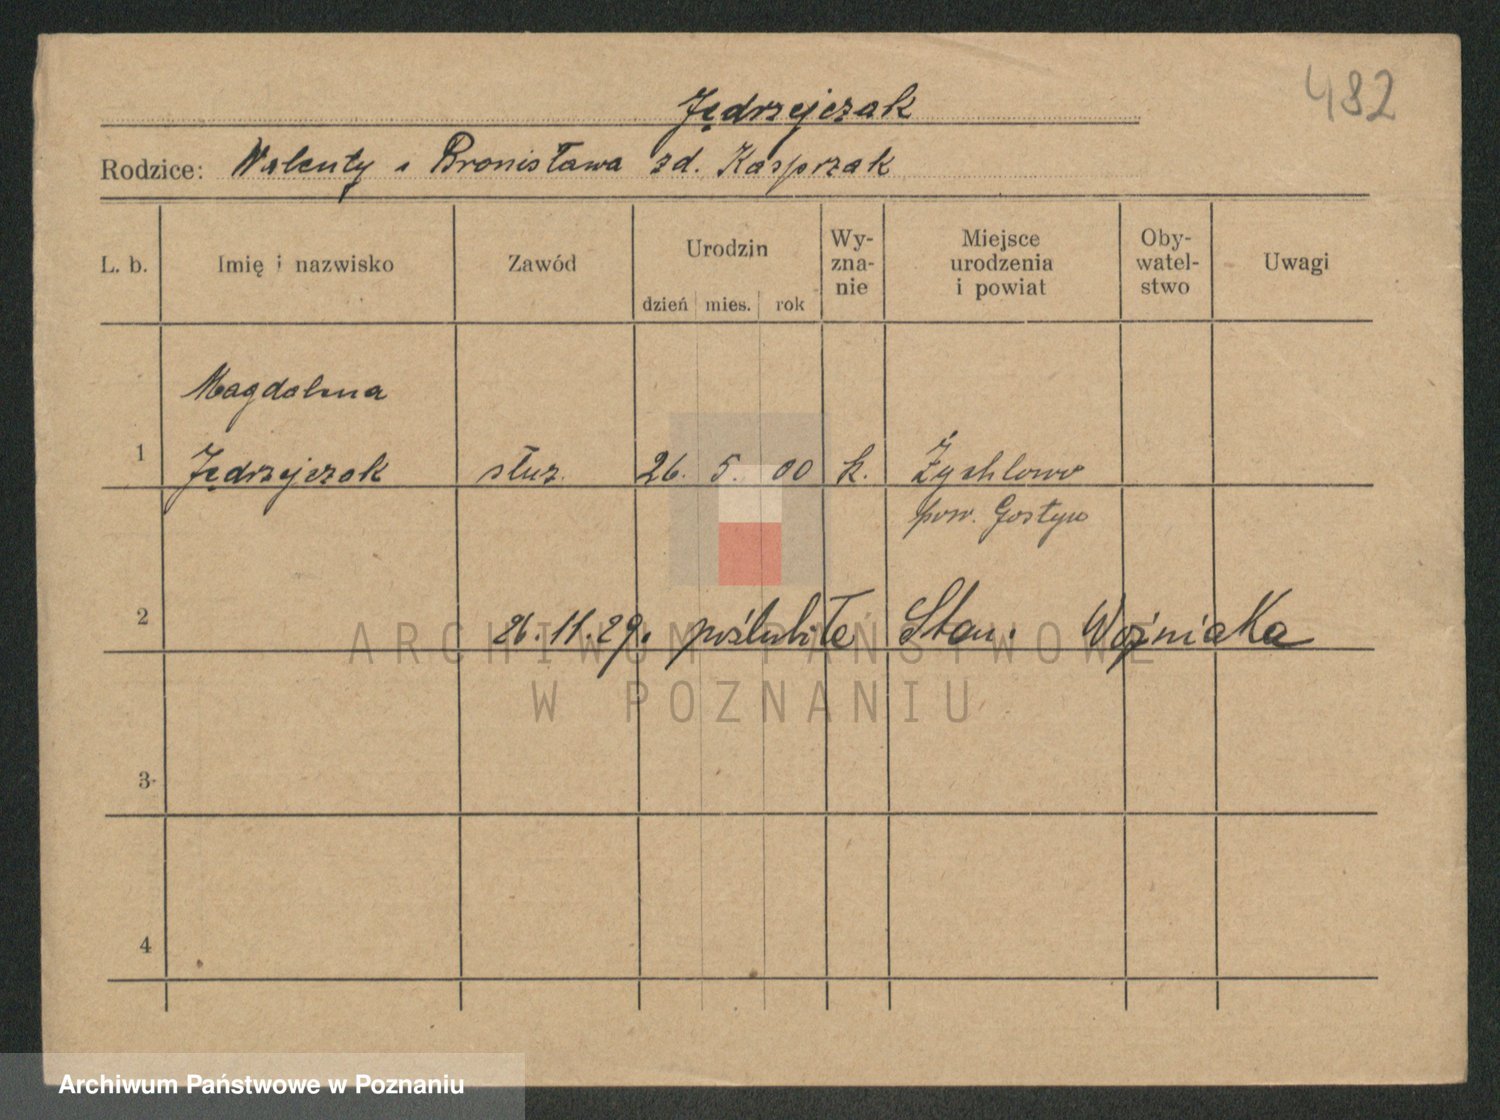 482
Jędrzejczak
Rodzice: Walenty i Bronisława zd. Kasprzak
L. b. Imię i nazwisko Zawód Urodzin Wy- Miejsce Oby- Uwagi
zna- urodzenia watel-
nie i powiat stwo
dzień mies. rok
Magdalena
1 Jędrzejczak służ. 26. 5. 00 k. Żychlewo
pow. Gostyń
2 26.11.29. poślubiła Stan. Woźniaka
ARCHIWUM PAŃSTWOWE
W POZNANIU
3
4
Archiwum Państwowe w Poznaniu